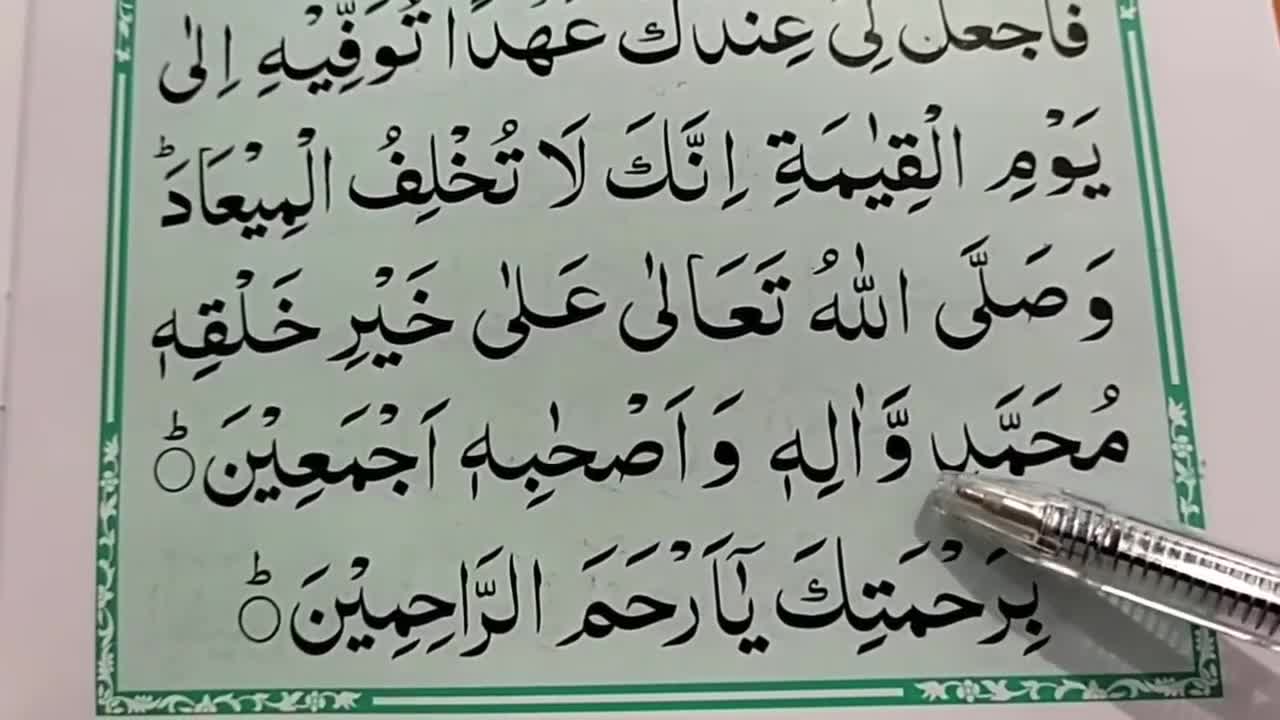 فَاجْعَلْ لِّیْ عِنْدَكَ عَهْدًا تُوَفِّیْهِ اِلٰی
یَوْمِ الْقِیٰمَةِ اِنَّكَ لَا تُخْلِفُ الْمِیْعَادَؕ
وَ صَلَّی اللّٰهُ تَعَالٰی عَلٰی خَیْرِ خَلْقِهٖ
مُحَمَّدٍ وَّاٰلِهٖ وَ اَصْحٰبِهٖ اَجْمَعِیْنَؕ۝
بِرَحْمَتِكَ یَاۤ اَرْحَمَ الرَّاحِمِیْنَؕ۝